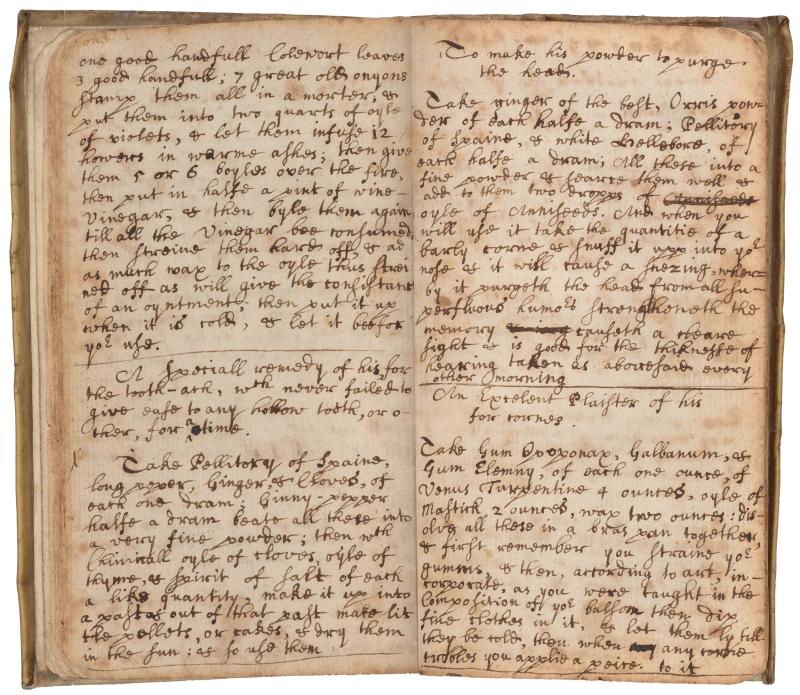 one good handfull Colewort leaves
3 good handfull; 7 great old onyons
stamp them all in a morter, &
put them into two quarts of oyle
of violets, & let them infuse 12
howers in warme ashes; then give
them 5 or 6 boyles over the fire,
then put in halfe a pint of wine-
Vinegar, & then boyle them again
till all the Vinegar bee consumed
then streine them hard off, & ad
as much wax to the oyle thus strei
ned off as will give the consistanc
of an oyntment; then put it up
when it is cold, & let it bee for
yor use.
A Speciall remedy of his for
the tooth-ach, wch never failed to
give ease to any hollow tooth, or o-
ther, for a time.
Take Pellitory of Spaine,
long peper, Ginger, & Cloves, of
each one dram; Ginny-pepper
halfe a dram beate all these into
a very fine powder; then wth
Chimicall oyle of cloves, oyle of
thyme, & Spirit of Salt of each
a like quantity, make it up into
a past & out of that past make lit
tle pellets, or cakes, & dry them
in the sun: & so use them
To make his powder to purge
the head.
Take ginger of the best, Orris pow-
der of each halfe a dram; Pellitory
of Spaine, & white Hellebore, of
each halfe a dram; All these into a
fine powder & searce them well &
add to them two dropps of Anniseeds
oyle of Anniseeds. And when you
will use it take the quantitie of a
barly corne & snuff it upp into yor
nose & it will cause a snezing, wher-
by it purgeth the head from all su-
perfluous humors strengtheneth the
memory causeth a cleare
sight & is good for the thiknesse of
hearing taken as abovesaid every
other morning
An Excelent Plaister of his
for cornes.
Take Gum Opoponax, Galbanum, &
Gum Elemny, of each one ounce, of
Venus Turpentine 4 ounces, oyle of
Mastick 2 ounces, wax two ounces: dis-
olve all these in a bras pan together,
& first remember you straine yor
gumms, & then, according to art, in-
corporate, as you were taught in the
Composition of yor balsom them dip
fine clothes in it, & let them ly till
they be cold, then when any corne
trobles you applie a peice to it